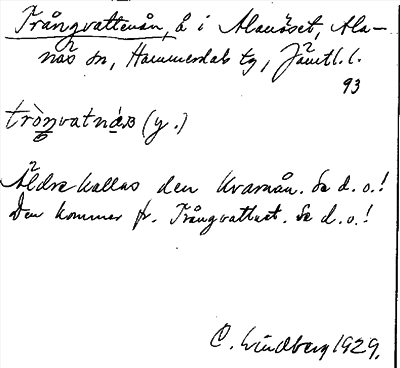 Trångvattenån, å i Alanäset, Ala-
näs sn, Hammerdals tg, Jämtl. l.
93
trònvatná̱n (y.)
Äldre kallas den Kvarnån. Se d. o.!
Den kommer fr. Trångvattnet. Se d. o.!
C. Lindberg 1929.